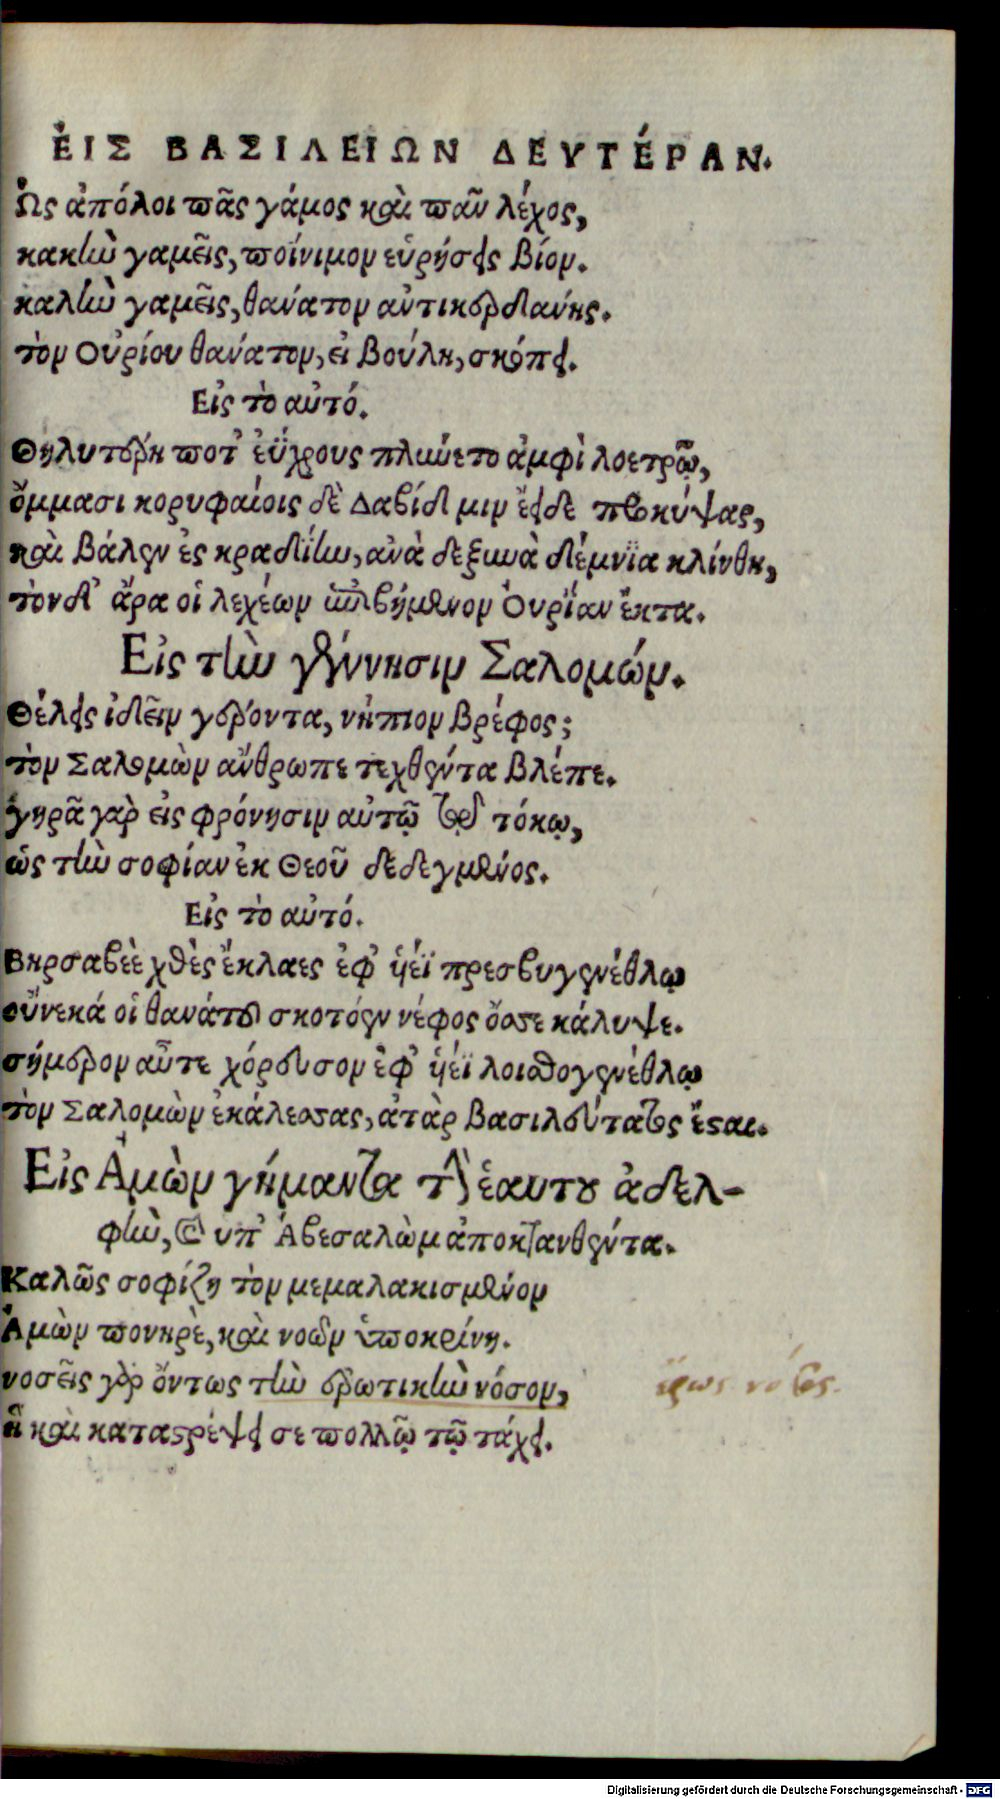 ἘΙΣ ΒΑΣΙΛΕΙΩΝ ΔΕΥΤΈΡΑΝ.
Ὡς ἀπόλοι πᾶς γάμος καὶ πᾶν λέχος,
κακὴν γαμεῖς, ποίνιμον εὑρήσεις βίον.
καλὴν γαμεῖς, θανάτον ἀντικερδανῆς.
τὸν Οὐρίου θανάτον, εἰ βούλῃ, σκόπει.
Εἰς τὸ αὐτό.
Θηλυτέρη ποτ' ἐΰχρους πλύνετο ἀμφὶ λοετρῷ,
ὄμμασι κορυφαίοις δὲ Δαβίδ μιν ἔειδε προκύψας,
καὶ βάλεν ἐς κραδίην, ἀνὰ δεξιὰ δέμνϊα κλίνθη,
τὸν δ' ἄρα οἱ λεχέων ἐπιβήμενον Ὀυρίαν ἔκτα.
Εἰς τὴν γέννησιν Σαλομών.
Θέλεις ἰδεῖν γέροντα, νήπιον βρέφος;
τὸν Σαλομὼν ἄνθρωπε τεχθέντα βλέπε.
γηρᾷ γὰρ εἰς φρόνησιν αὐτῷ τῷ τόκῳ,
ὡς τὴν σοφίαν ἐκ Θεοῦ δεδεγμένος.
Εἰς τὸ αὐτό.
Βηρσαβεὲ χθὲς ἔκλαες ἐφ' ὑέϊ πρεσβυγενέθλῳ
οὕνεκά οἱ θανάτου σκοτόεν νέφος ὄσσε κάλυψε.
σήμερον αὖτε χόρευσον ἐφ' ὑέϊ λοισθογενέθλῳ
τὸν Σαλομὼν ἐκάλεσσας, ἀτὰρ βασιλεύτατος ἔσαι.
Εἰς Ἀμὼν γήμαντα τὴν ἑαυτοῦ ἀδελ-
φὴν, καὶ υπ' Ἀβεσαλὼμ ἀποκτανθέντα.
Καλῶς σοφίζῃ τὸν μεμαλακισμένον
Ἀμὼν πονηρὲ, καὶ νοσεῖν ὑποκρίνῃ.
νοσεῖς γὰρ ὄντως τὴν ἐρωτικὴν νόσον,
ἣ καὶ καταστρέψει σε πολλῷ τῷ τάχει.
ἔρως νόσος.
Digitalisierung gefördert durch die Deutsche Forschungsgemeinschaft - DFG